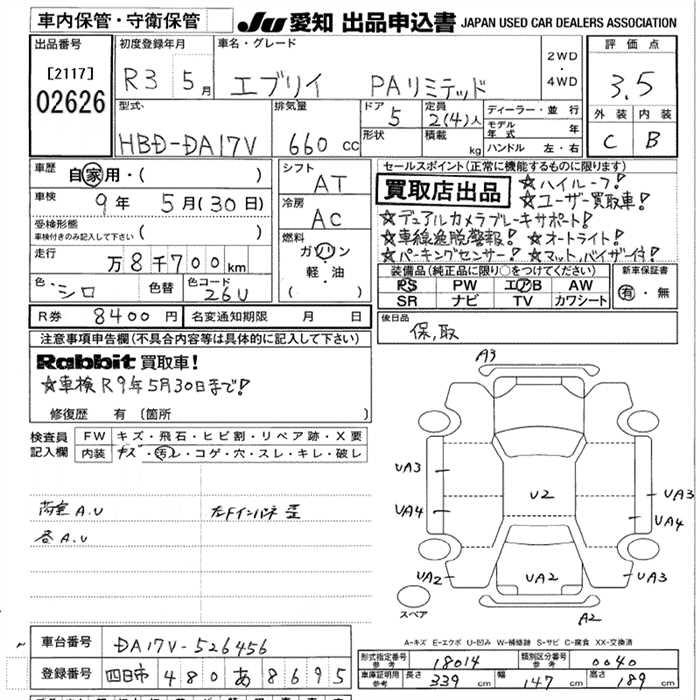 車内保管・守衛保管
JU 愛知 出品申込書 JAPAN USED CAR DEALERS ASSOCIATION
出品番号
[2117]
02626
初度登録年月
R3 5月
車名・グレード
エブリイ PAリミテッド
2WD
・
4WD
評価点
3.5
外装 内装
C B
型式
HBD-DA17V
排気量
660 cc
ドア
5
形状
定員
2(4)人
積載
kg
ディーラー・並行
モデル年式 年
ハンドル 左・右
車歴
自家用・( )
車検
9年 5月(30日)
受検形態
車検付きのみ記入して下さい ( )
走行
万8千700km
色
シロ
色替
色コード
26U
シフト
AT
冷房
AC
燃料
ガソリン
軽・油
( )
R券 8400円
名変通知期限 月 日
セールスポイント(正常に機能するものに限ります)
買取店出品
☆ハイルーフ!
☆ユーザー買取車!
☆デュアルカメラブレーキサポート!
☆車線逸脱警報! ☆オートライト!
☆パーキングセンサー! ☆マット,バイザー付!
装備品(純正品に限り○をつけてください)
PS PW エアB AW
SR ナビ TV カワシート
新車保証書
有・無
後日品
保,取
注意事項申告欄(不具合内容等は具体的に記入して下さい)
Rabbit 買取車!
☆車検R9年5月30日まで!
修復歴 有(箇所 )
検査員記入欄
FW キズ・飛石・ヒビ割・リペア跡・X要
内装 キズ・汚レ・コゲ・穴・スレ・キレ・破レ
荷室A.U 左Fインパネ歪
各A.U
A3
UA3
UA4
U2
UA3
UA4
UA2
UA2
UA3
A2
スペア
A-キズ E-エクボ U-凹み W-補修跡 S-サビ C-腐食 XX-交換済
車台番号 DA17V-526456
登録番号 四日市 480 あ 8695
型式指定番号 参考 18014
類別区分番号 参考 0040
車庫証明用 参考 長さ 339 cm 幅 147 cm 高さ 189 cm